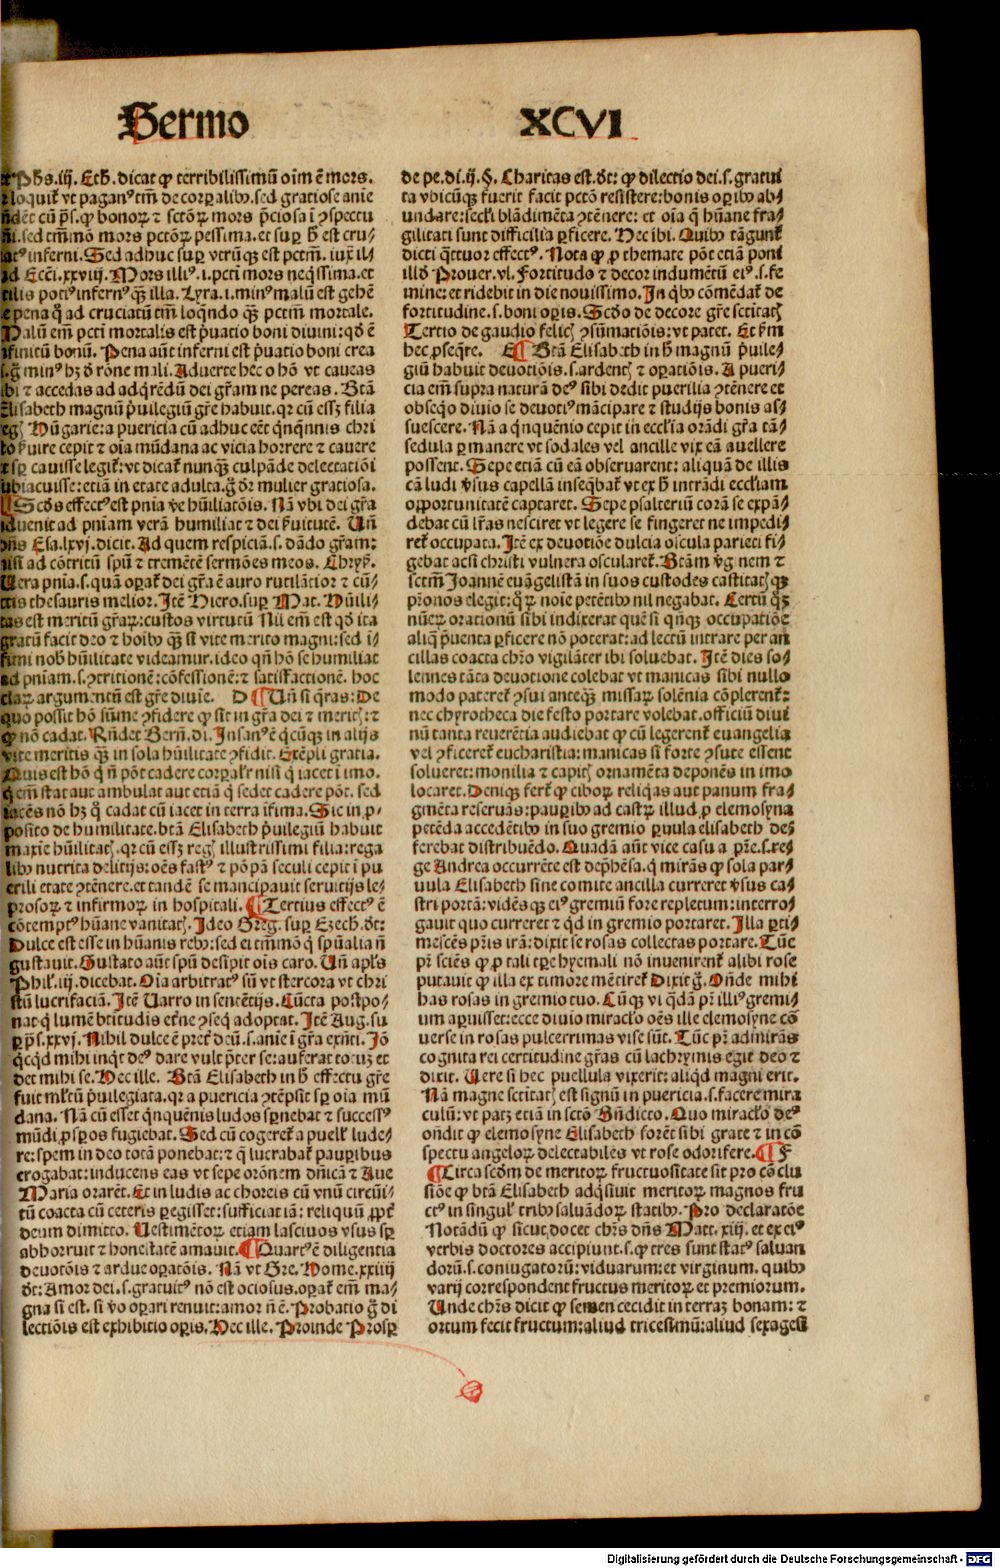 Sermo XCVI
Phs. iij. Eth. dicat ꝙ terribilissimū oīm ē mors.
loquit᷑ vt paganꝰ tm̄ de corꝑalibꝰ. sed gratiose anie
cū p̄s. ꝙ bonoꝝ ⁊ sctōꝝ mors p̄ciosa ī ↄspectu
sed tm̄mō mors pctōꝝ pessima. et suꝑ h̄ est cru⸗
inferni. Sed adhuc suꝑ vtrūqꝫ est pctm̄. iux̄ il⸗
Ecc̄i. xxviij. Mors illiꝰ. i. pcti mors neqͥssima. et
potiꝰ infernꝰ qꝫ̄ illa. Lyra. i. minꝰ malū est gehē
e pena q̄ ad cruciatū tm̄ loqn̄do qꝫ̄ pctm̄ mortale.
Malū em̄ pcti mortalis est p̄uatio boni diuini: qd̄ ē
īfinitū bonū. Pena aūt inferni est p̄uatio boni crea
minꝰ hꝫ d̄ rōne mali. Aduerte hec o hō vt caueas
ibi ⁊ accedas ad adqͥrēdū dei gr̄am ne pereas. Btā
Elisabeth magnū p̄uilegiū gr̄e habuit. qꝛ cū eēꝫ filia
Hūgarie: a puericia cū adhuc eēt qͥnqͣnnis chri
ẜuire cepit ⁊ oīa mūdana ac vicia horrere ⁊ cauere
sꝑ cauisse legit᷑: vt dicat᷑ nunqꝫ̄ culpāde delectatiōi
ubiacuisse: etiā in etate adulta. g̊ dr̄ mulier gratiosa.
Scd̄s effectꝰ est pnīa ꝟe hūiliatōis. Nā vbi dei gr̄a
aduenit ad pniam verā humiliat ⁊ dei ẜuitutē. Un̄
Esa. lxvj. dicit. Ad quem respiciā. s. dādo gr̄am:
nisi ad cōtritū spū ⁊ tremētē sermōes meos. Chryẜ.
Uera pnīa. s. quā oꝑat᷑ dei gr̄a ē auro rutilātior ⁊ cū⸗
ctis thesauris melior. Itē Hiero. suꝑ Mat. Hūili⸗
tas est meritū gr̄aꝝ: custos virtutū Nil em̄ est qd̄ ita
gratū facit deo ⁊ hoībꝰ qꝫ̄ si vite merito magni: sed ī⸗
fimi nob̄ hūilitate videamur. ideo qn̄ hō se humiliat
ad pniam. s. ↄtritionē: cōfessionē: ⁊ satisfactionē. hoc
claꝝ argumentū est gr̄e diuīe. D ¶ Un̄ si qͣras: De
quo possit hō sūme ↄfidere ꝙ sit in gr̄a dei ⁊ meritꝭ: ⁊
ꝙ nō cadat. Rn̄det Bern̄. di. Insanꝰ ē qͥcūqꝫ in alijs
vite meritis qꝫ̄ in sola hūilitate ↄfidit. Exēpli gratia.
Quis est hō q̄ n̄ pōt cadere corꝑalr̄ nisi q̄ iacet ī imo.
q̄ em̄ stat aut ambulat aut etiā q̄ sedet cadere pōt. sed
iacēs nō hꝫ q̊ cadat cū iacet in terra īfima. Sic in ꝓ⸗
posito de humilitate. btā Elisabeth p̄uilegiū habuit
maxīe hūilitatꝭ. qꝛ cū esꝫ regꝭ illustrissimi filia: rega
libꝰ nutrita delitijs: oēs fastꝰ ⁊ pōpā seculi cepit ī pu
erili etate ↄtēnere. et tandē se mancipauit seruitijs le⸗
prosoꝝ ⁊ infirmoꝝ in hospitali. ¶ Tertius effectꝰ ē
cōtemptꝰ hūane vanitatꝭ. Ideo Greg. suꝑ Ezech. dt̄:
Dulce est esse in hūanis rebꝰ: sed ei tm̄mō q̄ spūalia n̄
gustauit. Gustato aūt spū desipit oīs caro. Un̄ apl̄s
Phil̓. iij. dicebat. Oīa arbitratꝰ sū vt stercora vt chri
stū lucrifaciā. Itē Uarro in sentētijs. Cūcta postpo⸗
nat q̄ lumē btītudis et̓ne ↄseq̄ adoptat. Itē Aug. su
ꝑ ps̄. xxvj. Nihil dulce ē preẗ deū. s. anīe ī gr̄a exn̄ti. Iō
qͥcqͥd mihi inqͥt deꝰ dare vult p̄ter se: auferat totū et
det mihi se. Hec ille. Btā Elisabeth in h̄ effectu gr̄e
fuit ml̓tū p̄uilegiata. qꝛ a puericia ↄtēpsit sꝑ oīa mū
dana. Nā cū esset qͥnquēnis ludos spnebat ⁊ successꝰ
mūdi ꝓsꝑos fugiebat. Sed cū cogeret᷑ a puell̓ lude⸗
re: spem in deo totā ponebat: ⁊ q̄ lucrabat᷑ pauꝑibus
erogabat: inducens eas vt sepe orōnem dn̄icā ⁊ Aue
Maria orarēt. Et in ludis ac choreis cū vnū circūi⸗
tū coacta cū ceteris ꝑegisset: sufficiat iā: reliquū ꝓpt̓
deum dimitto. Uestimētoꝝ etiam lasciuos vsus sꝑ
abhorruit ⁊ honestatē amauit. ¶ Quartꝰ ē diligentia
deuotōis ⁊ ardue oꝑatōis. Nā vt Gre. Home. xxiiij
dt̄: Amor dei. s. gratuitꝰ nō est ociosus. oꝑat᷑ em̄ ma⸗
gna si est. si ꝟo oꝑari renuit: amor n̄ ē. Probatio g̊ di
lectiōis est exhibitio oꝑis. Hec ille. Proinde Prosꝑ
de pe. di. ij. §. Charitas est. dt̄: ꝙ dilectio dei. s. gratui
ta vbicūqꝫ fuerit facit pctō resistere: bonis oꝑibꝰ ab⸗
undare: secl̓i blādimēta ↄtēnere: et oīa q̄ hūane fra⸗
gilitati sunt difficilia ꝑficere. Hec ibi. Quibꝰ tāgunt᷑
dicti qͣttuor effectꝰ. Nota ꝙ ꝓ themate pōt etiā poni
illd̄ Prouer. vl. Fortitudo ⁊ decor indumētū eiꝰ. s. fe
mine: et ridebit in die nouissimo. In qͥbꝰ cōmēdat᷑ de
fortitudine. s. boni oꝑis. Scd̄o de decore gr̄e sctitatꝭ
Tertio de gaudio felicꝭ ↄsūmatiōis: vt patet. Et ẜm
hec ꝓseq̄re. E ¶ Btā Elisabeth in h̄ magnū p̄uile⸗
giū habuit deuotiōis. s. ardentꝭ ⁊ oꝑatiōis. A pueri⸗
cia em̄ supra naturā deꝰ sibi dedit puerilia ↄtēnere et
obseqͥo diuīo se deuotiꝰ mācipare ⁊ studijs bonis as⸗
suescere. Nā a qͥnquēnio cepit in eccl̓ia orādi gr̄a tā⸗
sedula ꝑmanere vt sodales vel ancille vix eā auellere
possent. Sepe etiā cū eā obseruarent: aliquā de illis
cā ludi ꝟsus capellā inseqͥbat᷑ vt ex h̄ intrādi eccl̓iam
oꝑortunitatē captaret. Sepe psalteriū corā se expā⸗
debat cū lr̄as nesciret vt legere se fingeret ne impedi⸗
ret᷑ occupata. Itē ex deuotiōe dulcia oscula parieti fi⸗
gebat acsi christi vulnera oscularet᷑. Btām ꝟgīnem ⁊
sctm̄ Joannē euāgelistā in suos custodes castitatꝭ qꝫ
pr̄onos elegit: q̊ꝝ noīe petētibꝰ nil negabat. Certū qꝫ̄
nūeꝝ orationū sibi indixerat quē si qͥnqꝫ occupatiōe
aliq̄ p̄uenta ꝑficere nō poterat: ad lectū intrare per an
cillas coacta chr̄o vigilāter ibi soluebat. Itē dies so⸗
lennes tāta deuotione colebat vt manicas sibi nullo
modo pateret᷑ ↄsui anteqꝫ̄ missaꝝ solēnia cōplerent᷑:
nec chyrotheca die festo portare volebat. officiū diui
nū tanta reuerētia audiebat ꝙ cū legerent᷑ euangelia
vel ↄficeret᷑ eucharistia: manicas si forte ↄsute essent
solueret: monilia ⁊ capitꝭ ornamēta deponēs in imo
locaret. Deniqꝫ fert᷑ ꝙ ciboꝝ reliqͥas aut panum fra⸗
gmēta reseruās: pauꝑibꝰ ad castꝝ illud ꝓ elemosyna
petēda accedētibꝰ in suo gremio ꝑuula elisabeth de⸗
ferebat distribuēdo. Quadā aūt vice casu a pr̄e. s. re⸗
ge Andrea occurrēte est dep̄hēsa. q̄ mirās ꝙ sola par⸗
uula Elisabeth sine comite ancilla curreret ꝟsus ca⸗
stri portā: vidēs qꝫ eiꝰ gremiū fore repletum: interro⸗
gauit quo curreret ⁊ qͥd in gremio portaret. Illa ꝑti⸗
mescēs pr̄is irā: dixit se rosas collectas portare. Tūc
pr̄ sciēs ꝙ ꝓ tali tꝑe hyemali nō inuenirent᷑ alibi rose
putauit ꝙ illa ex timore mētiret᷑ Dixit g̊. Ondē mihi
has rosas in gremio tuo. Cūqꝫ vi qͥdā pr̄ illiꝰ gremi⸗
um aꝑuisset: ecce diuīo miracl̓o oēs ille elemosyne cō
uerse in rosas pulcerrimas vise sūt. Tūc pr̄ admirās
cognita rei certitudine gr̄as cū lachrymis egit deo ⁊
dixit. Uere si hec puellula vixerit: aliqͥd magni erit.
Nā magne sctitatꝭ est signū in puericia. s. facere mira
culū: vt patꝫ etiā in sctō Bn̄dicto. Quo miracl̓o deꝰ
on̄dit ꝙ elemosyne Elisabeth forēt sibi grate ⁊ in cō
spectu angeloꝝ delectabiles vt rose odorifere. ¶ F
¶ Circa scd̄m de meritoꝝ fructuositate sit pro cōclu
siōe ꝙ btā Elisabeth adqͥsiuit meritoꝝ magnos fru
ctꝰ in singul̓ tribꝰ saluādoꝝ statibꝰ. Pro declaratōe
Notādū ꝙ sicut docet chr̄s dn̄s Matt. xiij. et ex eiꝰ
verbis doctores accipiunt. s. ꝙ tres sunt statꝰ saluan
dorū. s. coniugatorū: viduarum: et virginum. quibꝰ
varij correspondent fructus meritoꝝ et premiorum.
Unde chr̄s dicit ꝙ semen cecidit in terraꝫ bonam: ⁊
ortum fecit fructum: aliud tricesimū: aliud sexagesi
Digitalisierung gefördert durch die Deutsche Forschungsgemeinschaft - DFG